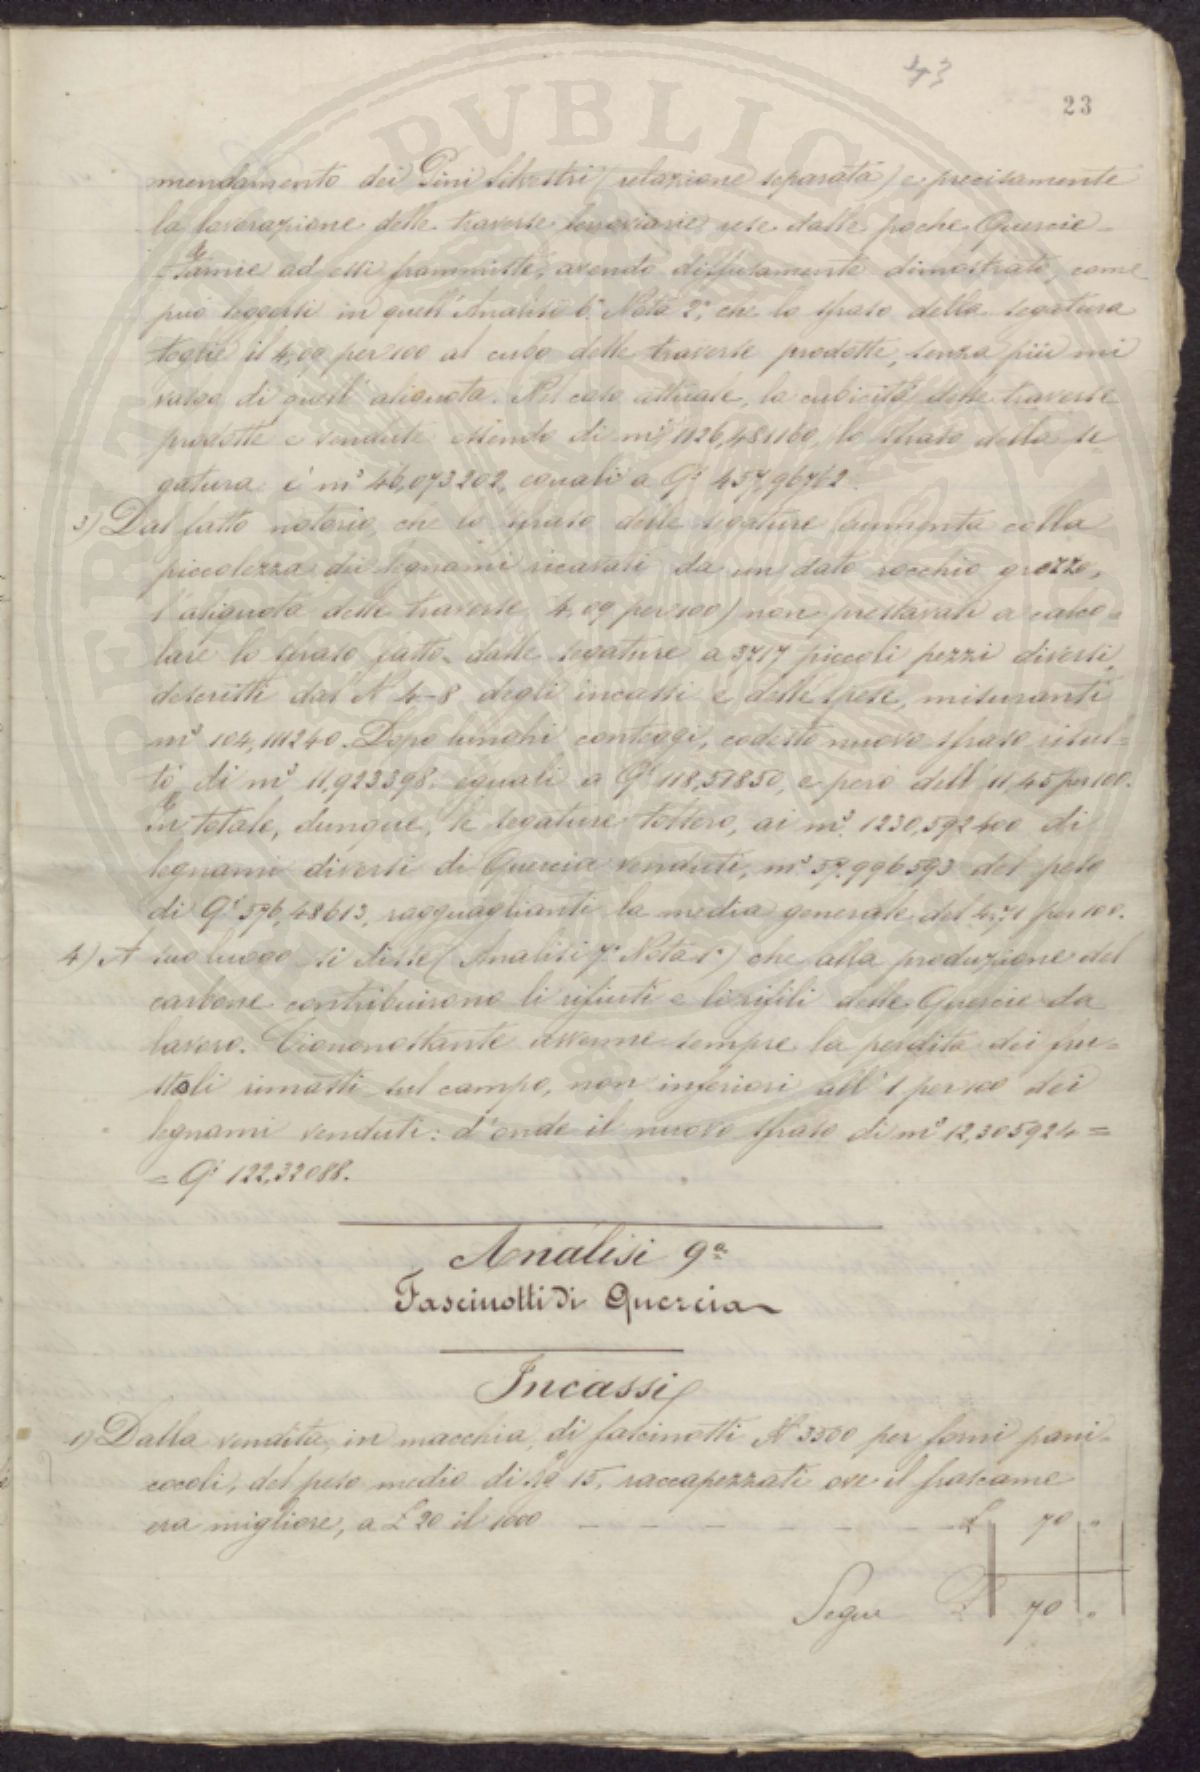 43
23
mendamento dei Pini Silvestri (relazione separata) e precisamente
la lavorazione delle traverse ferroviarie rese dalle poche Quercie-
Farnie ad essi frammiste, avendo diffusamente dimostrato, come
può leggersi in quell'Analisi 6ª Nota 2ª, che lo sfraso della segatura
toglie il 4,09 per 100 al cubo delle traverse prodotte, senza più mi
valgo di quest'aliquota. Nel caso attuale, la cubicità delle traverse
prodotte e vendute essendo di m³ 1126,481160, lo sfraso della se-
gatura è m³ 46,073202, eguali a Qⁱ 457,96762.
3) Dal fatto notorio, che lo sfraso delle segature aumenta colla
piccolezza dei legnami ricavati da un dato rocchio grezzo,
l'aliquota delle traverse (4,09 per 100) non prestavasi a calco-
lare lo sfraso fatto dalle segature a 3717 piccoli pezzi diversi,
descritti dal N 4-8 degli incassi e delle spese, misuranti
m³ 104,111240. Dopo lunghi conteggi, codesto nuovo sfraso risul-
tò di m³ 11,923398 eguali a Qⁱ 118,51850, e però dell'11,45 per 100.
In totale, dunque, le segature tolsero, ai m³ 1230,592400 di
legnami diversi di Quercia venduti, m³ 57,996593 del peso
di Qⁱ 576,48613, ragguaglianti la media generale del 4,71 per 100.
4) A suo luogo si disse (Analisi 7ª Nota 1ª) che alla produzione del
carbone contribuirono li rifiuti e li rifili delle Quercie da
lavoro. Ciononostante avvenne sempre la perdita dei fru-
stoli rimasti sul campo, non inferiori all'1 per 100 dei
legnami venduti: d'onde il nuovo sfraso di m³ 12,305924 =
= Qⁱ 122,32088.
Analisi 9ª
Fascinotti di Quercia
Incassi
1) Dalla vendita, in macchia, di fascinotti N° 3500 per forni pani-
cocoli, del peso medio di Kg 15, raccapezzati ove il frascame
era migliore, a £ 20 il 1000 — — — — — — £ 70 "
Segue £ 70 "